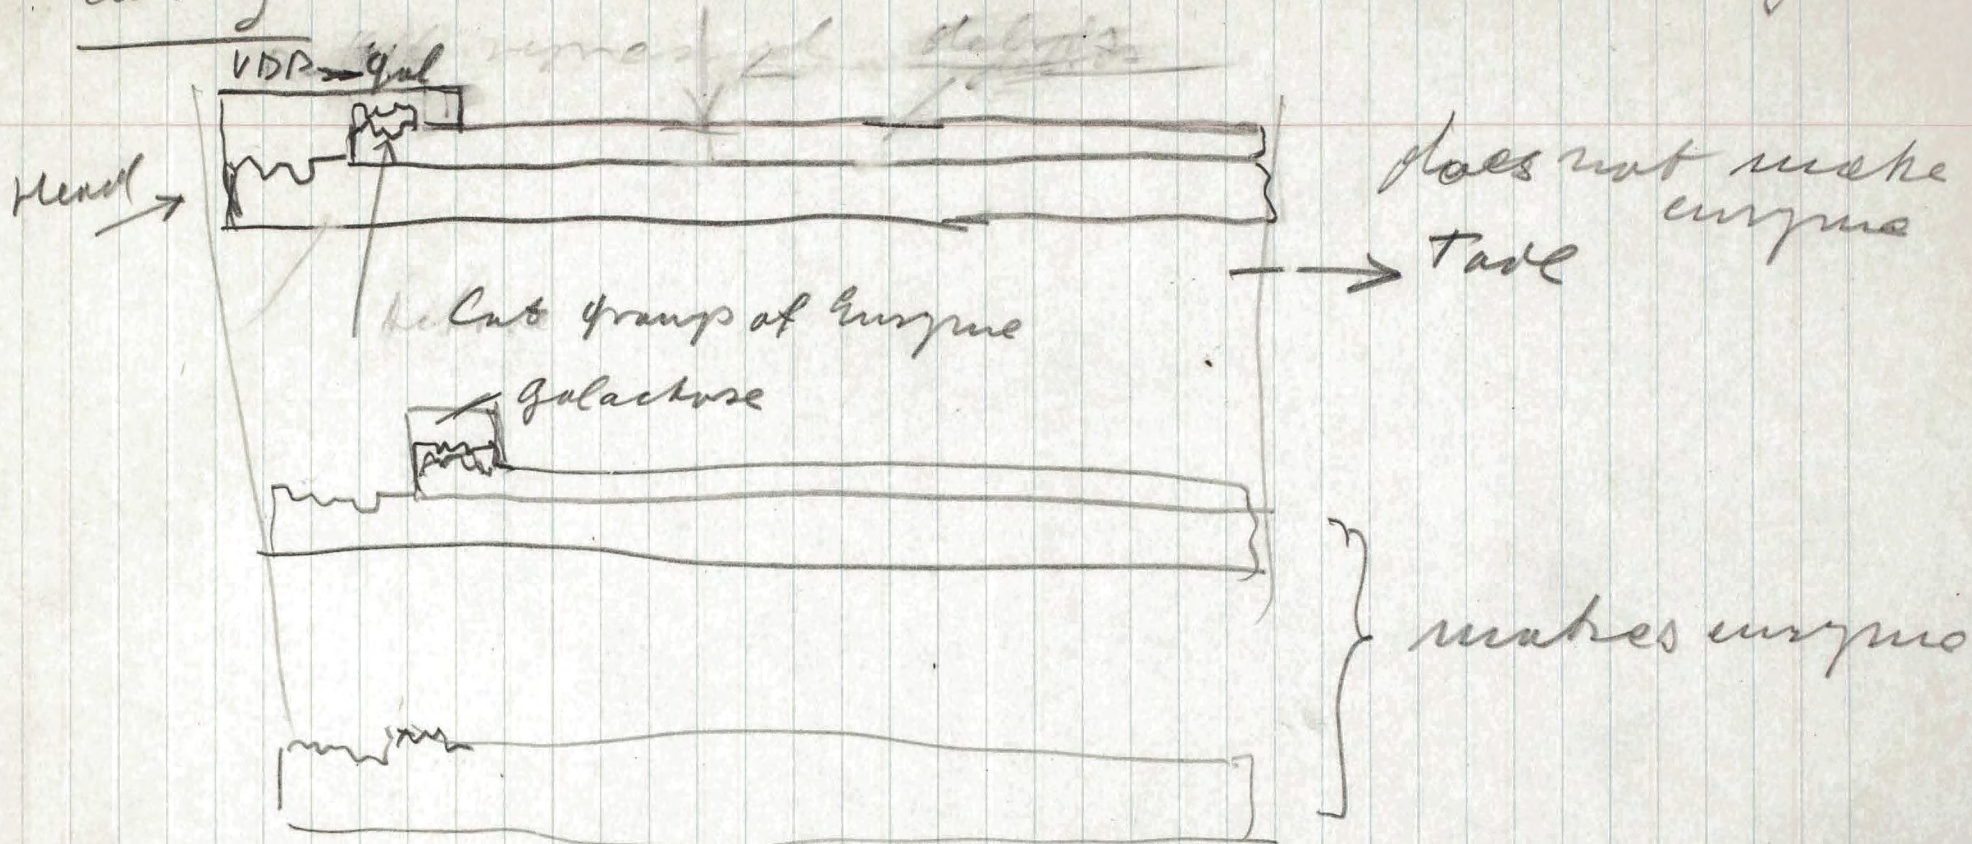 UDP-gal
Head
does not make
enzyme
Tail
Cat group of Enzyme
galactose
makes enzyme